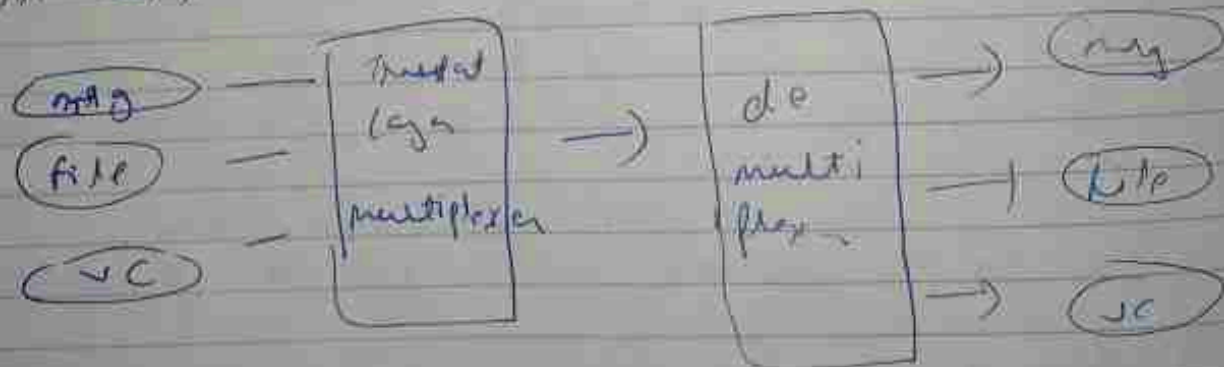 msg
file
vc
layer
multiplexer
de
multi
plex
msg
file
vc